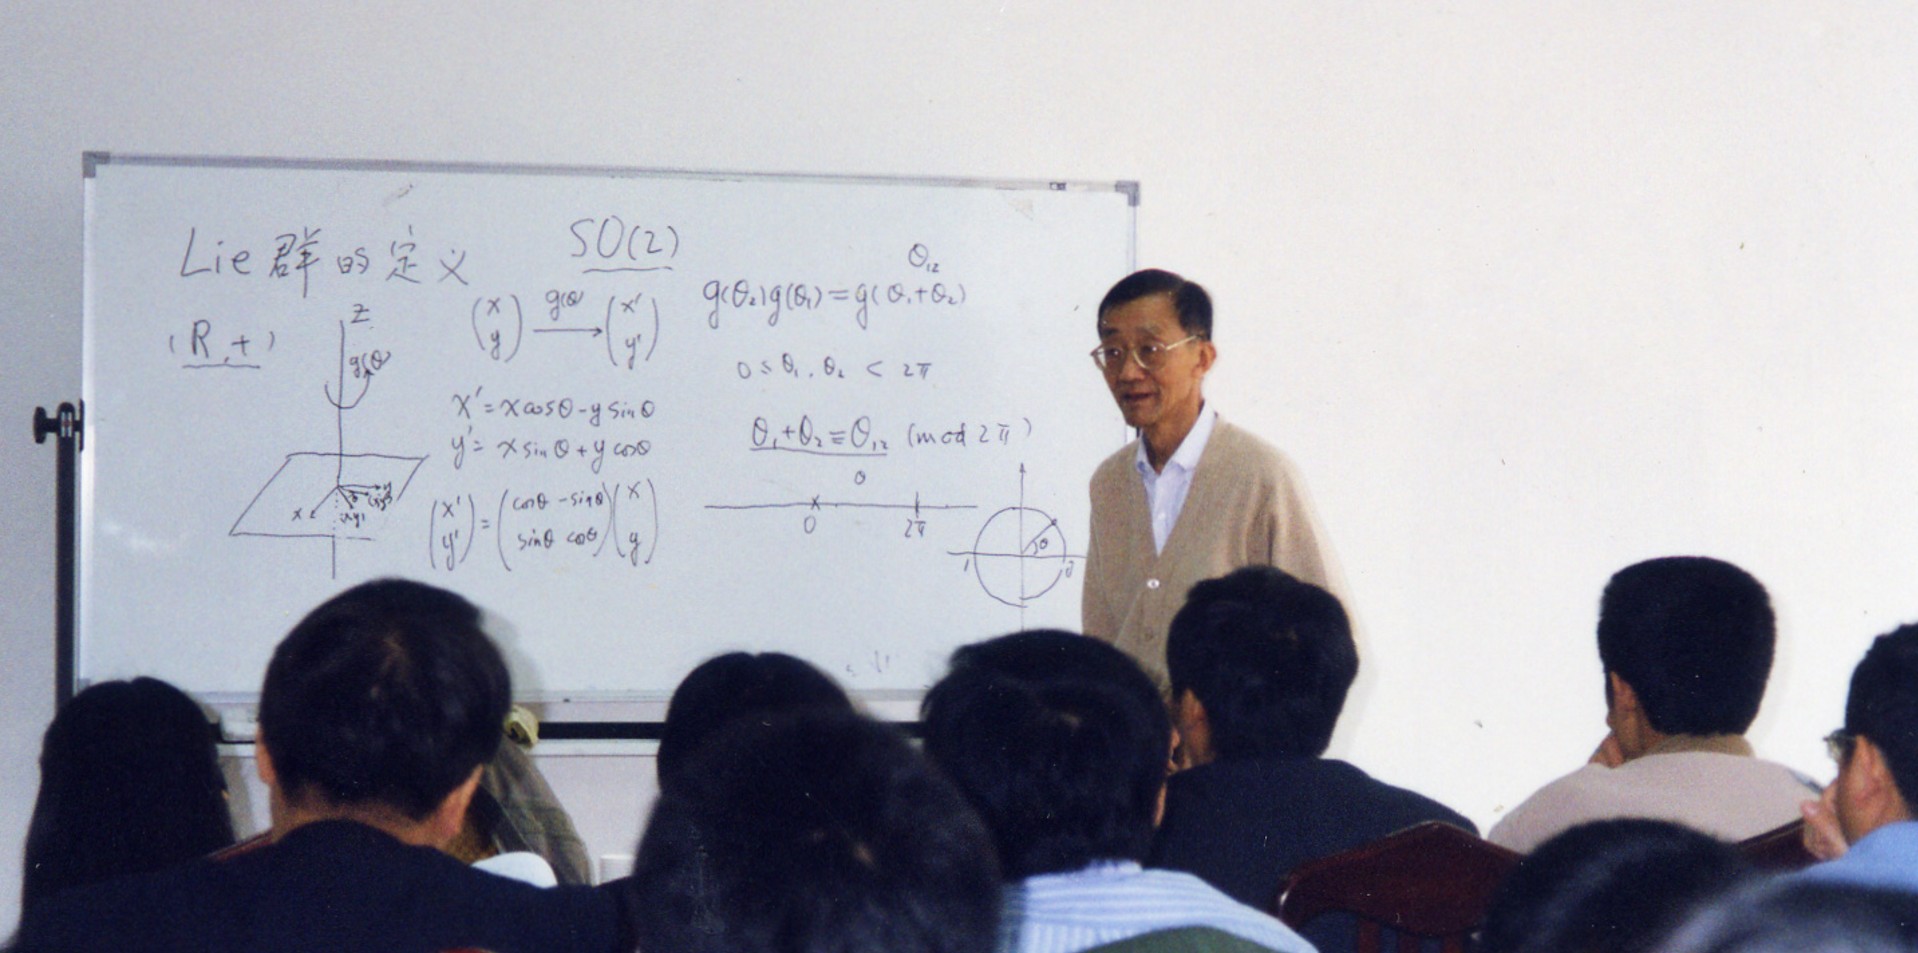 Lie 群的定义
(R, +)
Z
g(θ)
x
y
SO(2)
(x y) g(θ) → (x' y')
x' = x cosθ - y sinθ
y' = x sinθ + y cosθ
(x' y') = (cosθ -sinθ sinθ cosθ)(x y)
θ₁₂
g(θ₂)g(θ₁) = g(θ₁+θ₂)
0 ≤ θ₁, θ₂ < 2π
θ₁+θ₂ ≡ θ₁₂ (mod 2π)
θ
0 2π
θ